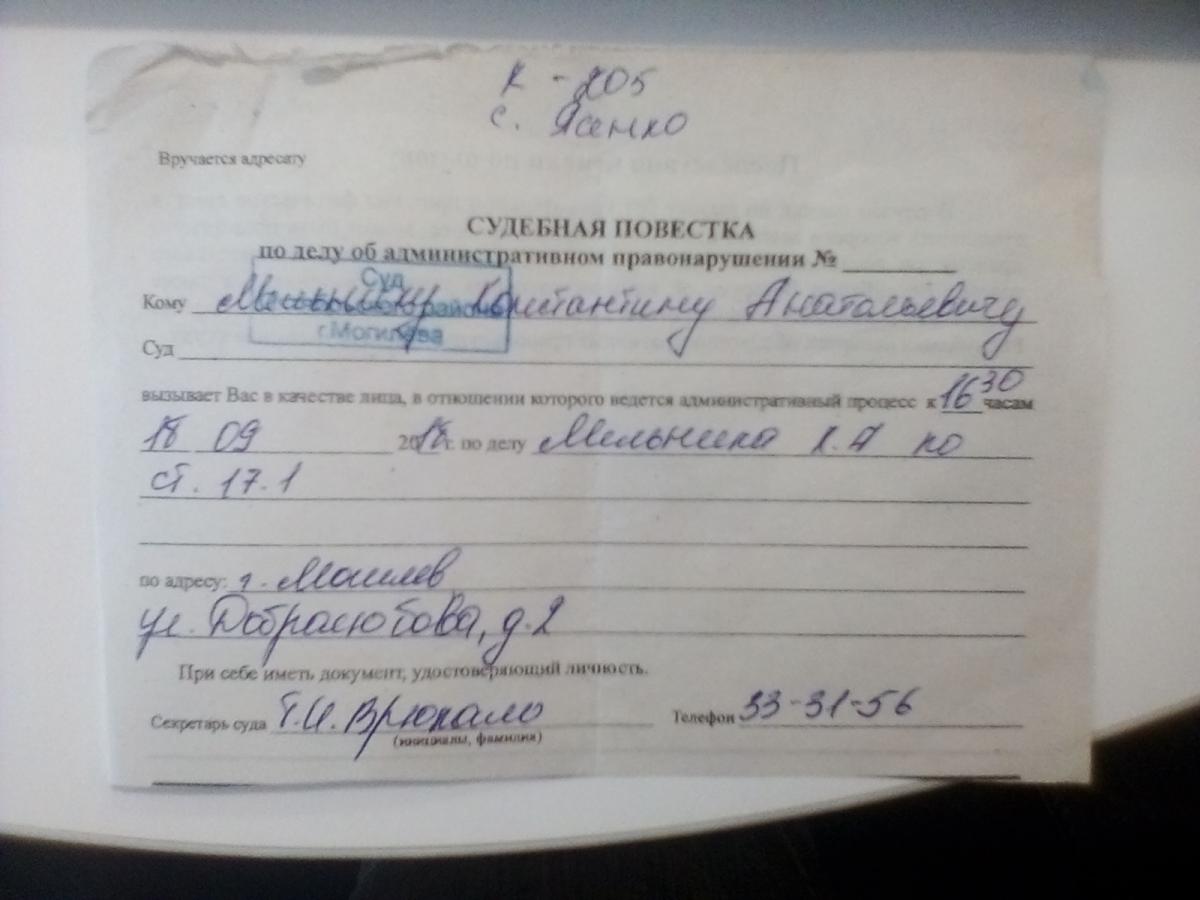 К - 205
с. Ясенко
Вручается адресату
СУДЕБНАЯ ПОВЕСТКА
по делу об административном правонарушении №
Суд
г.Могилева
Кому Мельнику Константину Анатольевичу
Суд
вызывает Вас в качестве лица, в отношении которого ведется административный процесс к 16 30 часам
18 09 2018г. по делу Мельника К.А по
ст. 17.1
по адресу: г. Могилев
ул. Добралюбова, д.2
При себе иметь документ, удостоверяющий личность.
Секретарь суда Т.И. Телефон 33-31-56
(инициалы, фамилия)